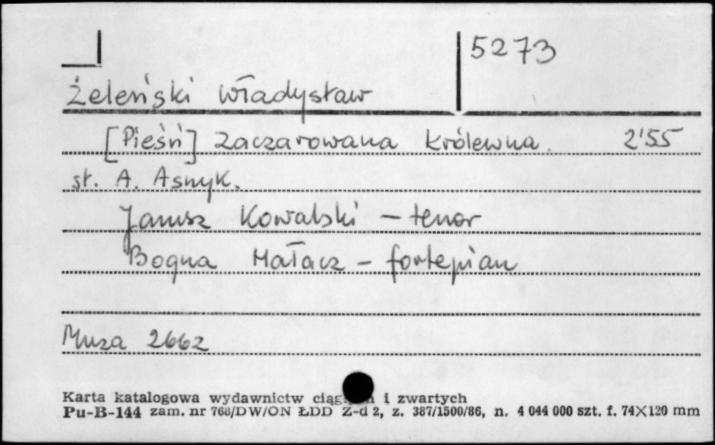 5273
Żeleński Władysław
[Pieśń] Zaczarowana królewna. 2'55
sł. A. Asnyk.
Janusz Kowalski - tenor
Bogna Hałacz - fortepian
Muza 2662
Karta katalogowa wydawnictw i zwartych
Pu-B-144 zam. nr 768/DW/ON ŁDD Z-d 2, z. 387/1500/86, n. 4 044 000 szt. f. 74X120 mm